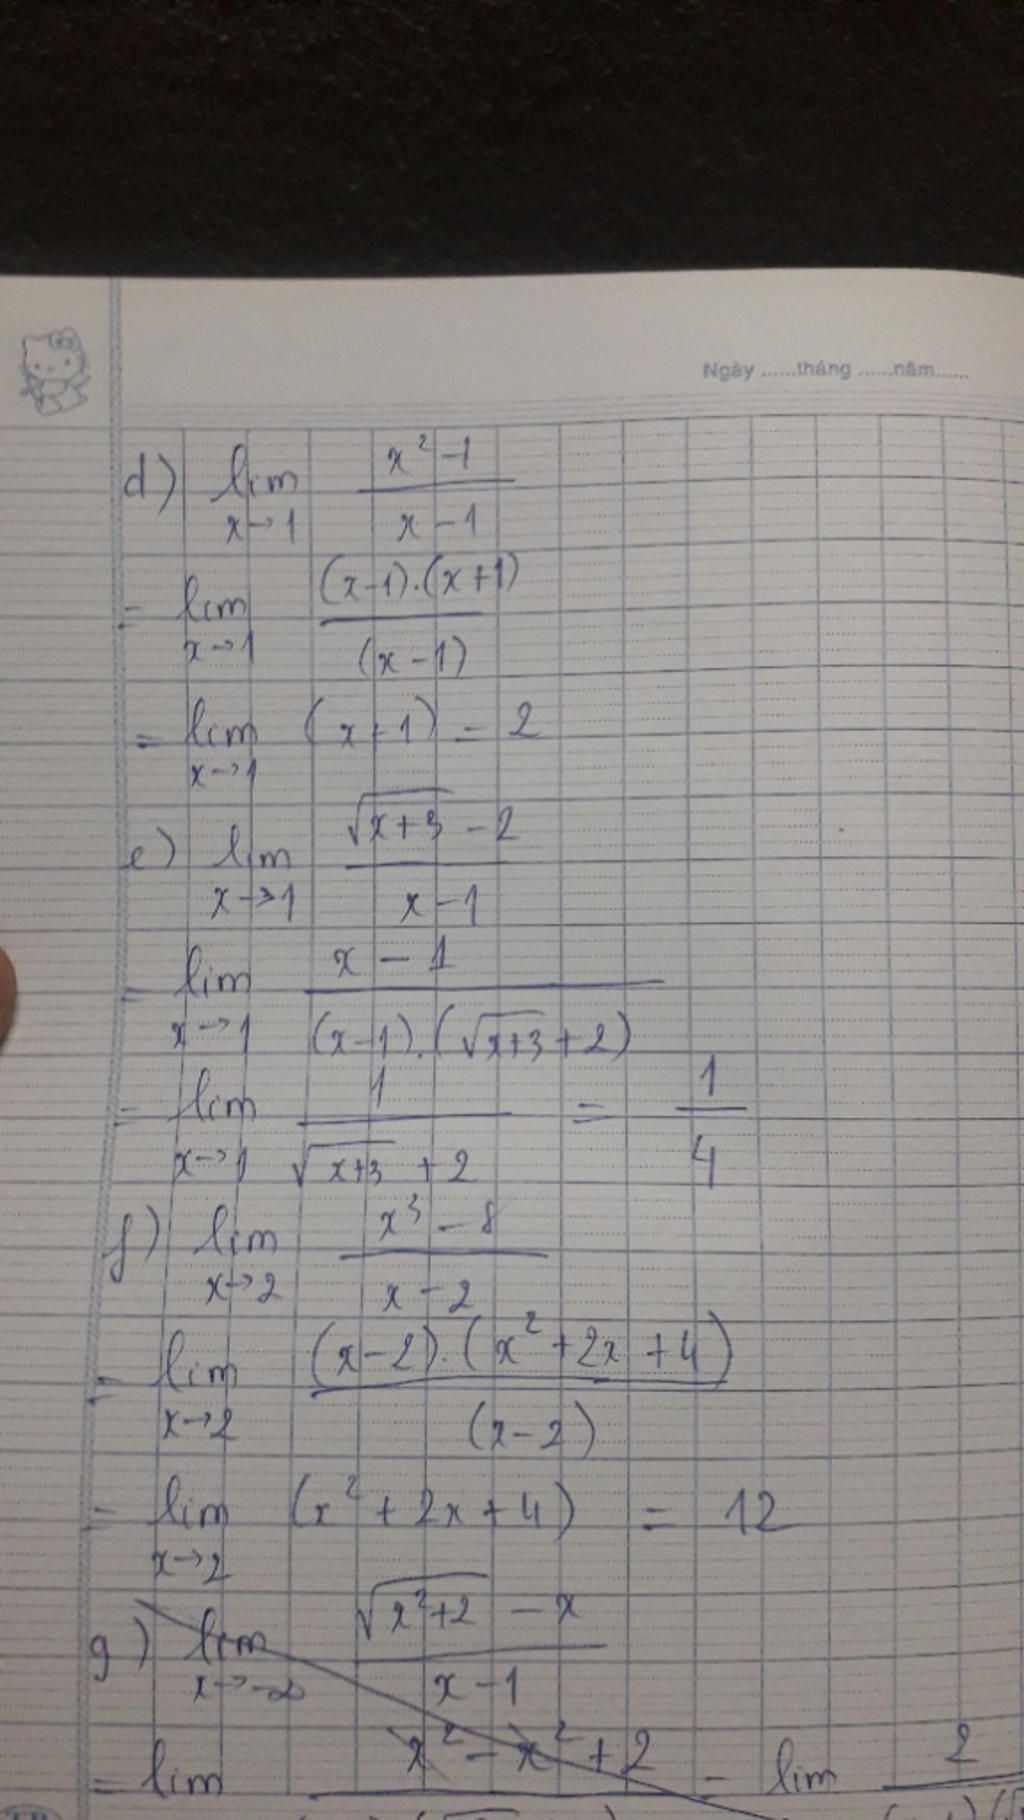 Ngày ......tháng ......năm......
d) lim x→1 (x² - 1)/(x - 1)
= lim x→1 ((x-1).(x+1))/((x-1))
= lim x→1 (x+1) = 2
e) lim x→1 (√(x+3) - 2)/(x - 1)
= lim x→1 (x - 1)/((x-1).(√(x+3) + 2))
= lim x→1 1/(√(x+3) + 2) = 1/4
f) lim x→2 (x³ - 8)/(x - 2)
= lim x→2 ((x-2).(x² + 2x + 4))/((x-2))
= lim x→2 (x² + 2x + 4) = 12
g) lim x→-∞ (√(x²+2) - x)/(x - 1)
= lim x² - x² + 2 = lim 2